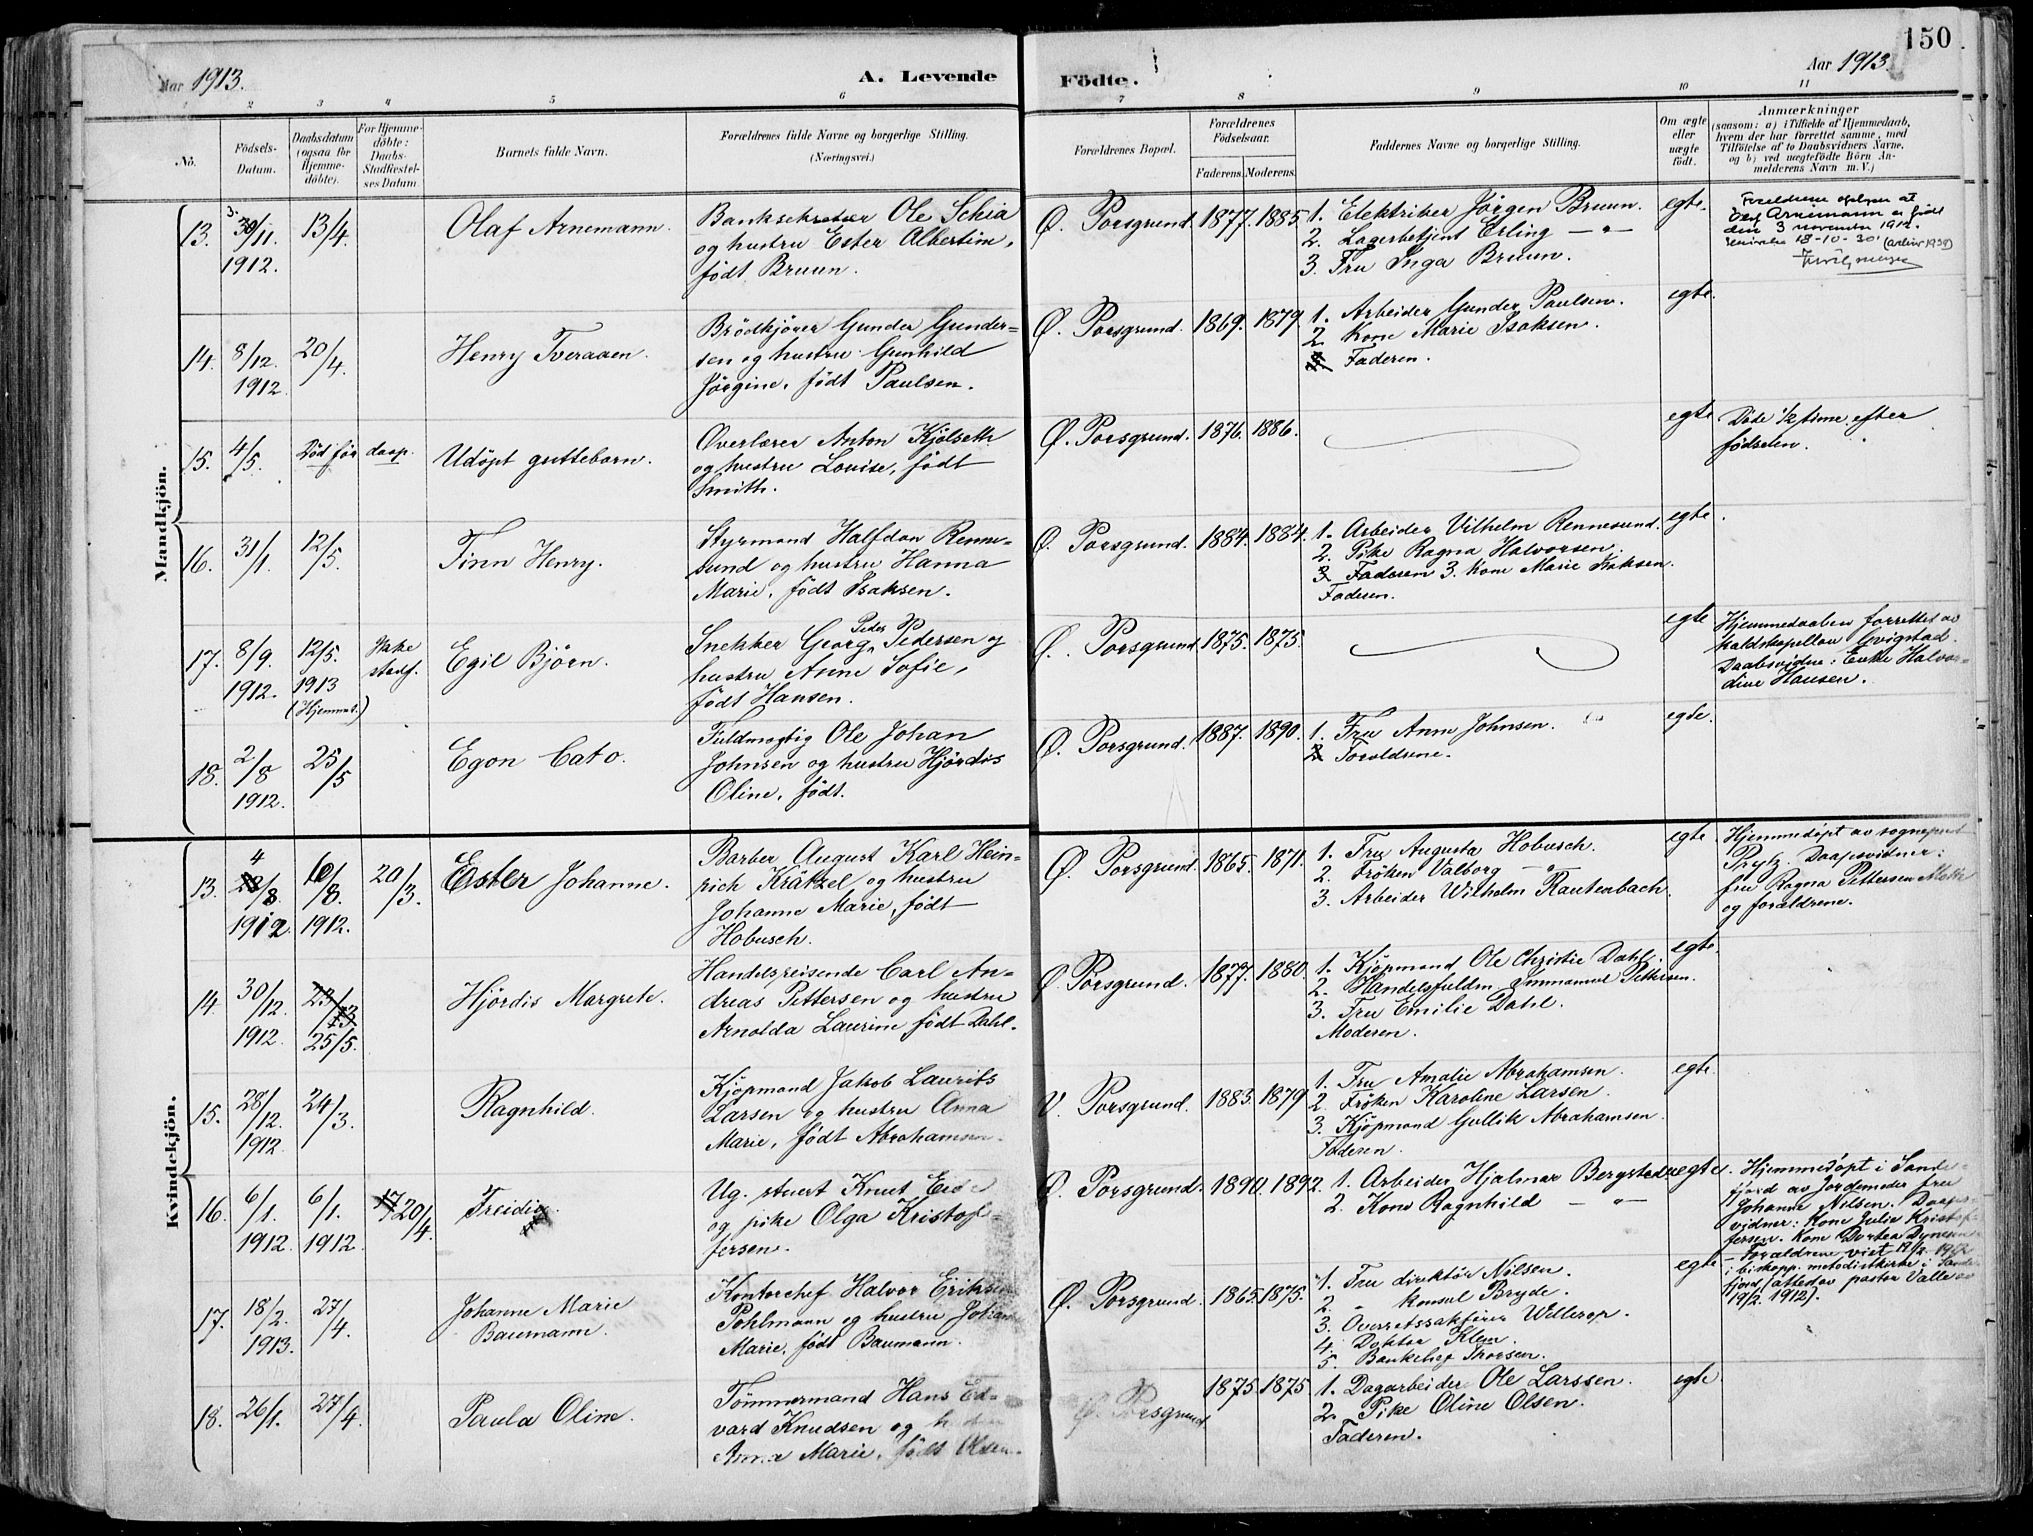 150
Aar 1913.
A. Levende
Födte.
Aar 1913.
1 2 3 4 5 6 7 8 9 10 11
No.
Födsels-Datum.
Daabsdatum (ogsaa for Hjemme-döbte).
For Hjemme-döbte: Daabs-Stadfæstel-ses Datum.
Barnets fulde Navn.
Forældrenes fulde Navne og borgerlige Stilling.
(Næringsvei.)
Forældrenes Bopæl.
Forældrenes Födselsaar.
Faderens. Moderens.
Faddernes Navne og borgerlige Stilling.
Om ægte eller uægte födt.
Anmærkninger
(saasom: a) i Tilfælde af Hjemmedaab,
hvem der har forrettet samme, med
Tilföielse af to Daabsvidners Navne,
og b) ved uægtefödte Börn An-
melderens Navn m. V.)
Mandkjön.
13. 3. 30/11. 1912. 13/4. Olaf Arnemann.
Banksekretær Ole Schia
og hustru Ester Albertine,
født Bruun.
Ø. Porsgrund. 1877. 1885.
1. Elektriker Jørgen Bruun.
2. Lagerbetjent Erling — " —
3. Fru Inga Bruun.
egte.
Foreldrene opgiver at
Olaf Arnemann er født
den 3 november 1912.
18-10-30
14. 8/12. 1912. 20/4. Henry Tveraaen.
Brödkjører Gunder Gunder=
sen og hustru Gunhild
Jørgine, født Paulsen.
Ø. Porsgrund. 1869. 1879.
1. Arbeider Gunder Paulsen.
2. Kone Marie Isaksen.
Faderen.
egte.
15. 4/5. Död før daap. Udöpt guttebarn.
Overlærer Anton Kjölseth
og hustru Louise, født
Smith.
Ø. Porsgrund. 1876. 1886.
egte
Döde 1/2 time efter
fødselen.
16. 31/1. 12/5. Finn Henry.
Styrmand Halfdan Renne-
sund og hustru Hanna
Marie, født Isaksen.
Ø. Porsgrund. 1884. 1884.
1. Arbeider Vilhelm Rennesund.
2. Pike Ragna Halvorsen.
3. Faderen 3. Kone Marie Isaksen.
Faderen.
egte.
17. 8/9. 1912. 12/5. 1913 (Hjemmet.) Ikke stadf. Egil Björn.
Snekker Georg Peder Pedersen og
hustru Anne Sofie,
født Hansen.
Ø. Porsgrund. 1875. 1875.
egte
Hjemmedaaben forrettet av
kaldskapellan Kvigstad.
Daabsvidne: Enke Halvor-
dine Hansen.
18. 2/8 1912. 25/5 Egon Cato.
Fuldmegtig Ole Johan
Johnsen og hustru Hjördis
Oline, født.
Ø. Porsgrund. 1887. 1890.
1. Fru Anne Johnsen.
2. Foreldrene.
egte.
Kvindekjön.
13. 4 /8. 1912. 10/8. 1912. 20/3. Ester Johanne.
Barber August Karl Hein-
rich Krätzel og hustru
Johanne Marie, født
Hobusch.
Ø. Porsgrund. 1865. 1871.
1. Fru Augusta Hobusch.
2. Frøken Valborg — " —
3. Arbeider Wilhelm Rautenbach.
egte.
Hjemmedöpt av sogneprest
Prytz. Daapsvidner:
fru Ragna Pettersen Moth
og forældrene.
14. 30/12. 1912. 23/ 25/5. Hjördis Margrete.
Handelsreisende Carl An-
dreas Pettersen og hustru
Arnolda Laurine født Dahl.
Ø. Porsgrund. 1877. 1880.
1. Kjøpmand Ole Christie Dahl.
2. Handelsfuldm. Immanuel Pettersen.
3. Fru Emilie Dahl.
Moderen.
egte.
15. 28/12. 1912. 24/3. Ragnhild.
Kjøpmand Jakob Laurits
Larsen og hustru Anna
Marie, født Abrahamsen.
V. Porsgrund. 1883. 1879
1. Fru Amalie Abrahamsen.
2. Frøken Karoline Larsen.
3. Kjøpmand Gullik Abrahamsen.
Faderen.
egte.
16. 6/1. 1912. 6/1. 1912. 17 20/4. Freidig.
Ug. stuert Knut Eide
og pike Olga Kristof-
fersen.
Ø. Porsgrund. 1890. 1892.
1. Arbeider Hjalmar Bergstad
2. Kone Ragnhild — " —
egte.
Hjemmedöpt i Sande-
fjord av jordemoder fru
Johanne Nilsen. Daaps-
vidner: Kone Julie Kristof-
fersen. Kone Dortea
— Forældrene viet 19/2 1912
i biskopp. metodistkirke i Sande-
fjord (attest av pastor Valle
19/2 1912).
17. 18/2. 1913. 27/4. Johanne Marie
Baumann.
Kontorchef Halvor Eriksen
Pohlmann og hustru Johanne
Marie, født Baumann.
Ø. Porsgrund. 1865. 1875.
1. Fru direktør Nilsen.
2. " konsul Bryde.
3. Overretssakfører Willerop.
4. Doktor Klem.
5. Bankchef Thorsen.
egte
18. 26/1. 27/4. Paula Oline.
Tömmermand Hans Ed-
vard Knudsen og hustru
Anna Marie, født Olsen.
Ø. Porsgrund 1875 1875
1. Dagarbeider Ole Larssen.
2. Pike Oline Olsen.
Faderen.
egte